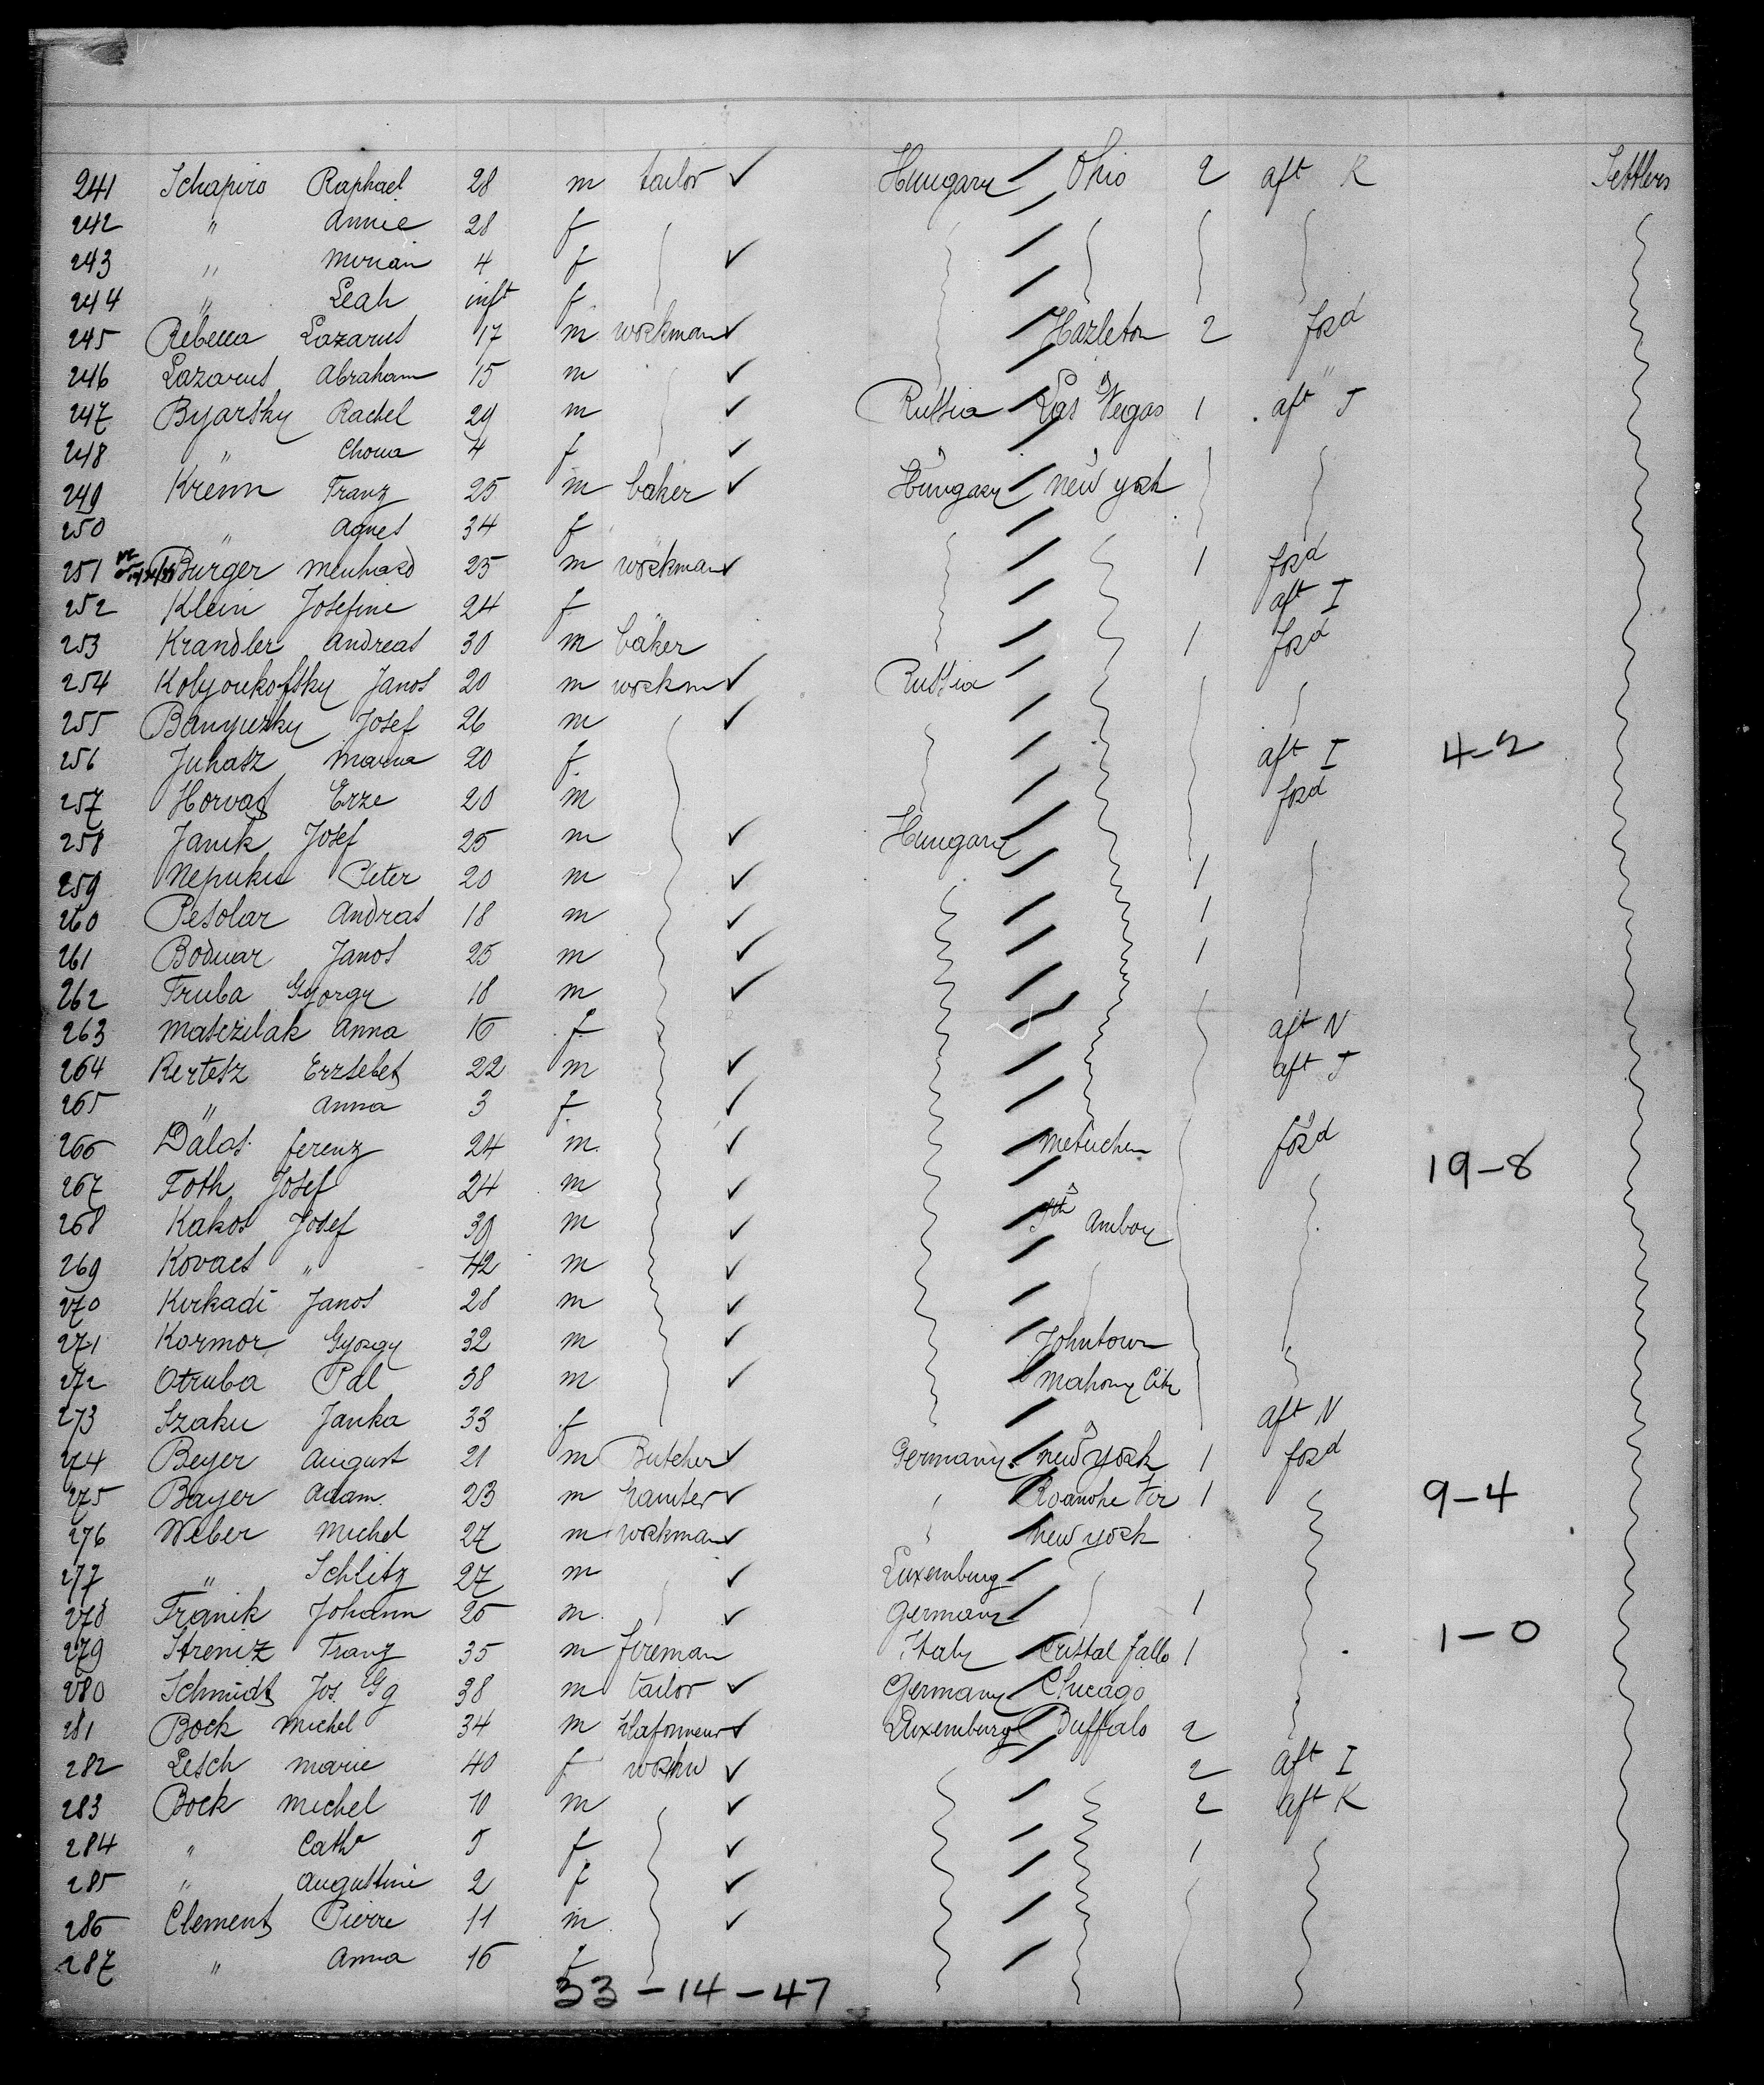 241 Schapiro Raphael 28 m tailor ✓ Hungary Ohio 2 aft K Settlers
242 " Annie 28 f
243 " Mirian 4 f ✓
244 " Leah inft f
245 Rebecca Lazarus 17 m workman ✓ Hazleton 2 ford
246 Lazarus Abraham 15 m ✓ "
247 Byarsky Rachel 29 m ✓ Russia Las Vegas 1 aft J
248 " Chowa 4 f ✓
249 Krenn Franz 25 m baker ✓ Hungary new york
250 " Agnes 34 f
251 Burger Menhard 25 m workman ✓ 1 ford
252 Klein Josefine 24 f aft I
253 Krandler Andreas 30 m baker 1 ford
254 Kolyoukofsky Janos 20 m workm ✓ Russia
255 Banyuszky Josef 26 m ✓
256 Juhasz Maria 20 f aft I 4-2
257 Horvat Erze 20 m ford
258 Janik Josef 25 m ✓ Hungary
259 Nepuku Peter 20 m ✓ 1
260 Pesolar Andras 18 m ✓ 1
261 Bodnar Janos 25 m ✓ 1
262 Truba Gyorgy 18 m ✓
263 Masczilak Anna 16 f aft N
264 Kertesz Erzsebet 22 m ✓ aft J
265 " Anna 3 f ✓
266 Dalos ferenz 24 m ✓ Metuchen ford
267 Toth Josef 24 m ✓ 19-8
268 Kakos Josef 39 m ✓ Pth Amboy
269 Kovacs " 42 m ✓
270 Kirkadi Janos 28 m ✓
271 Kormor Gyorgy 32 m ✓ Johntown
272 Otruba Pal 38 m ✓ Mahony City
273 Szaku Janka 33 f aft N
274 Beyer August 21 m Butcher ✓ Germany new york 1 ford
275 Bayer Adam 23 m ✓ " Roanoke Vir 1 9-4
276 Weber Michel 27 m workman ✓ " new york
277 " Schlitz 27 m ✓ Luxemburg
278 Franik Johann 25 m ✓ Germany 1
279 Streniz Franz 35 m fireman Italy Cristal falls 1 1-0
280 Schmidt Jos. Gg 38 m tailor ✓ Germany Chicago
281 Bock Michel 34 m ✓ Luxemburg Buffalo 2
282 Lesch Marie 40 f ✓ 2 aft I
283 Bock Michel 10 m ✓ 2 aft K
284 " Cath 5 f ✓ 1
285 " Augustine 2 f ✓
286 Clement Pierre 11 m ✓
287 " Anna 16 f
33-14-47